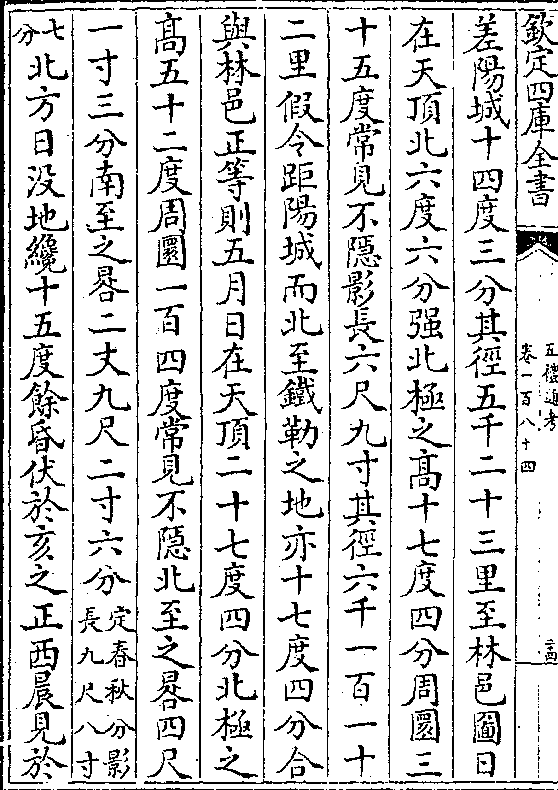 欽定四庫全書
五禮通考
卷一百八十四
差陽城十四度三分其徑五千二十三里至林邑圖日
在天頂北六度六分强北極之高十七度四分周圜三
十五度常見不隱影長六尺九寸其徑六千一百一十
二里假令距陽城而北至鐵勒之地亦十七度四分合
與林邑正等則五月日在天頂二十七度四分北極之
高五十二度周圜一百四度常見不隱北至之晷四尺
一寸三分南至之晷二丈九尺二寸六分定春秋分影
長九尺八寸
七分北方日没地纔十五度餘昏伏於亥之正西晨見於